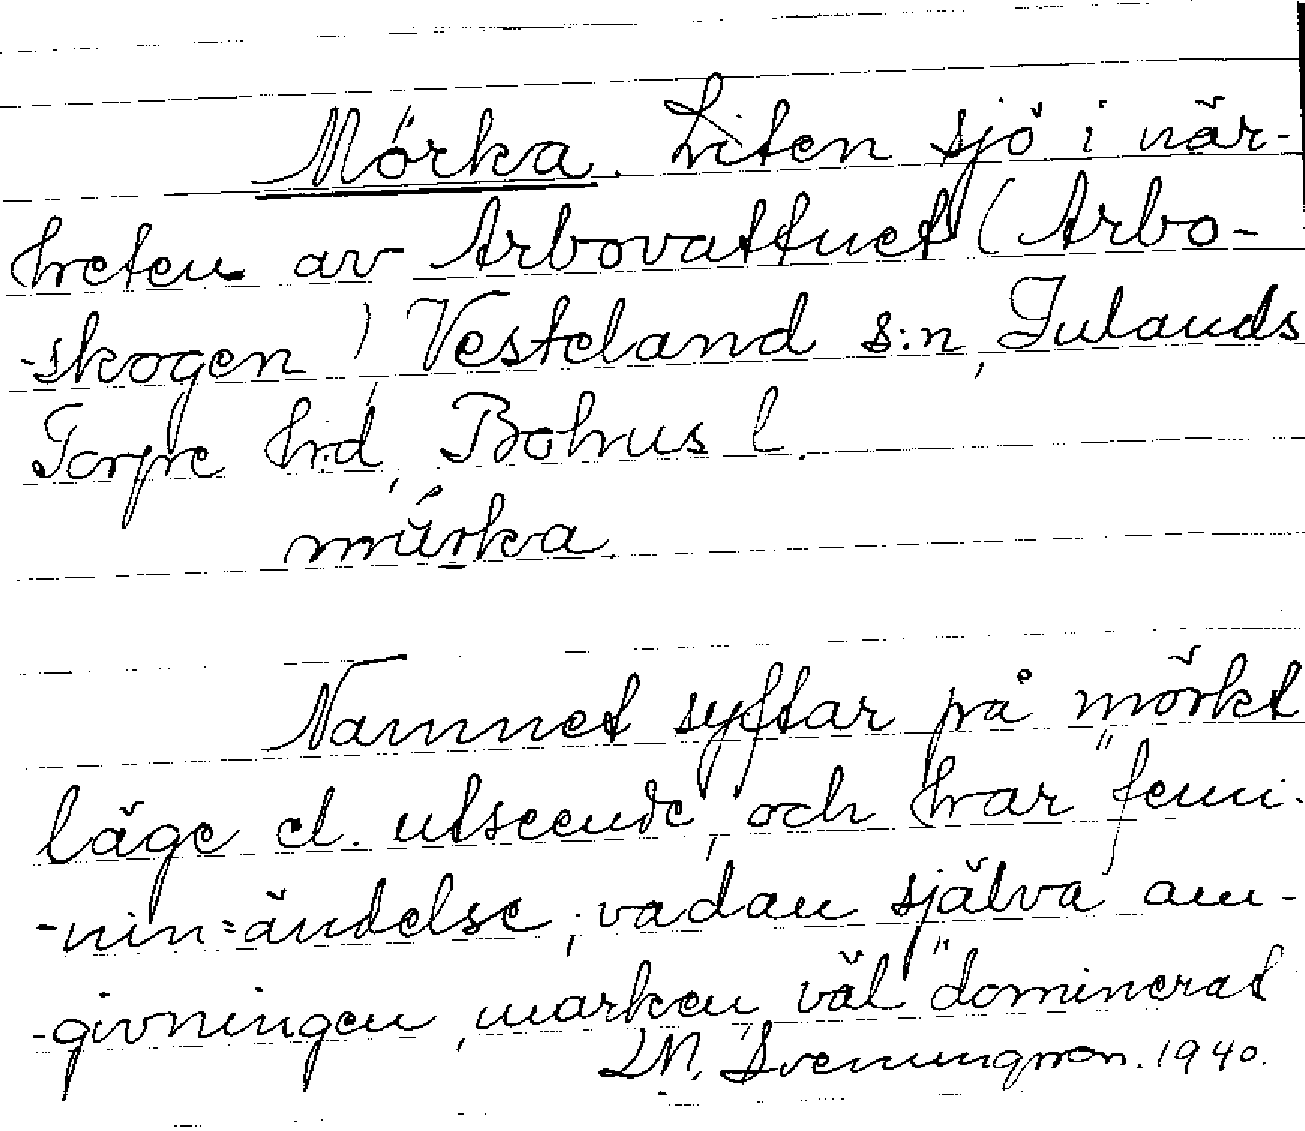 Mörka. Liten sjö i när-
heten av Arbovattnet (Arbo-
-skogen), Vesteland s:n, Inlands
Torpe hrd, Bohus l.
mürka.
Namnet syftar på mörkt
läge el. utseende, och har "femi-
-nin=ändelse", vadan själva om-
-givningen, marken, väl "dominerat
LM. Svenungsson. 1940.